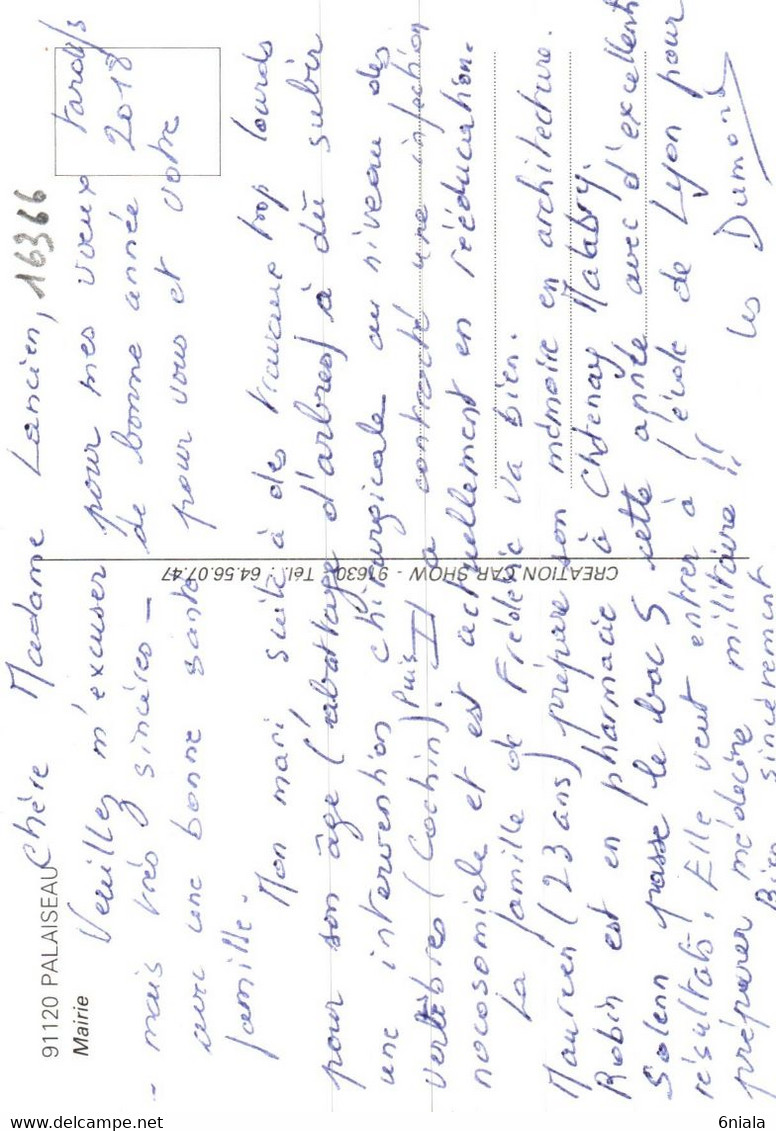 91120 PALAISEAU
Mairie
CREATION CAR SHOW - 91630 - Tél. : 64.56.07.47
16366
Chère Madame Lancien,
Veuillez m'excuser pour mes voeux tardifs
- mais très sincères - de bonne année 2018
avec une bonne santé pour vous et votre
famille.
Mon mari, suite à des travaux trop lourds
pour son âge (abattage d'arbres) à dû subir
une intervention chirurgicale au niveau des
vertèbres (Cochin). Puis Il a contracté une infection
nocosomiale et est actuellement en rééducation.
La famille de Frédéric va bien.
Maureen (23 ans) prépare son mémoire en architecture.
Robin est en pharmacie à Chtenay Malabry.
Solenn passe le bac S cette année avec d'excellents
résultats. Elle veut entrer à l'école de Lyon pour
préparer médecine militaire !!
Bien sincèrement
les Dumond
6niala